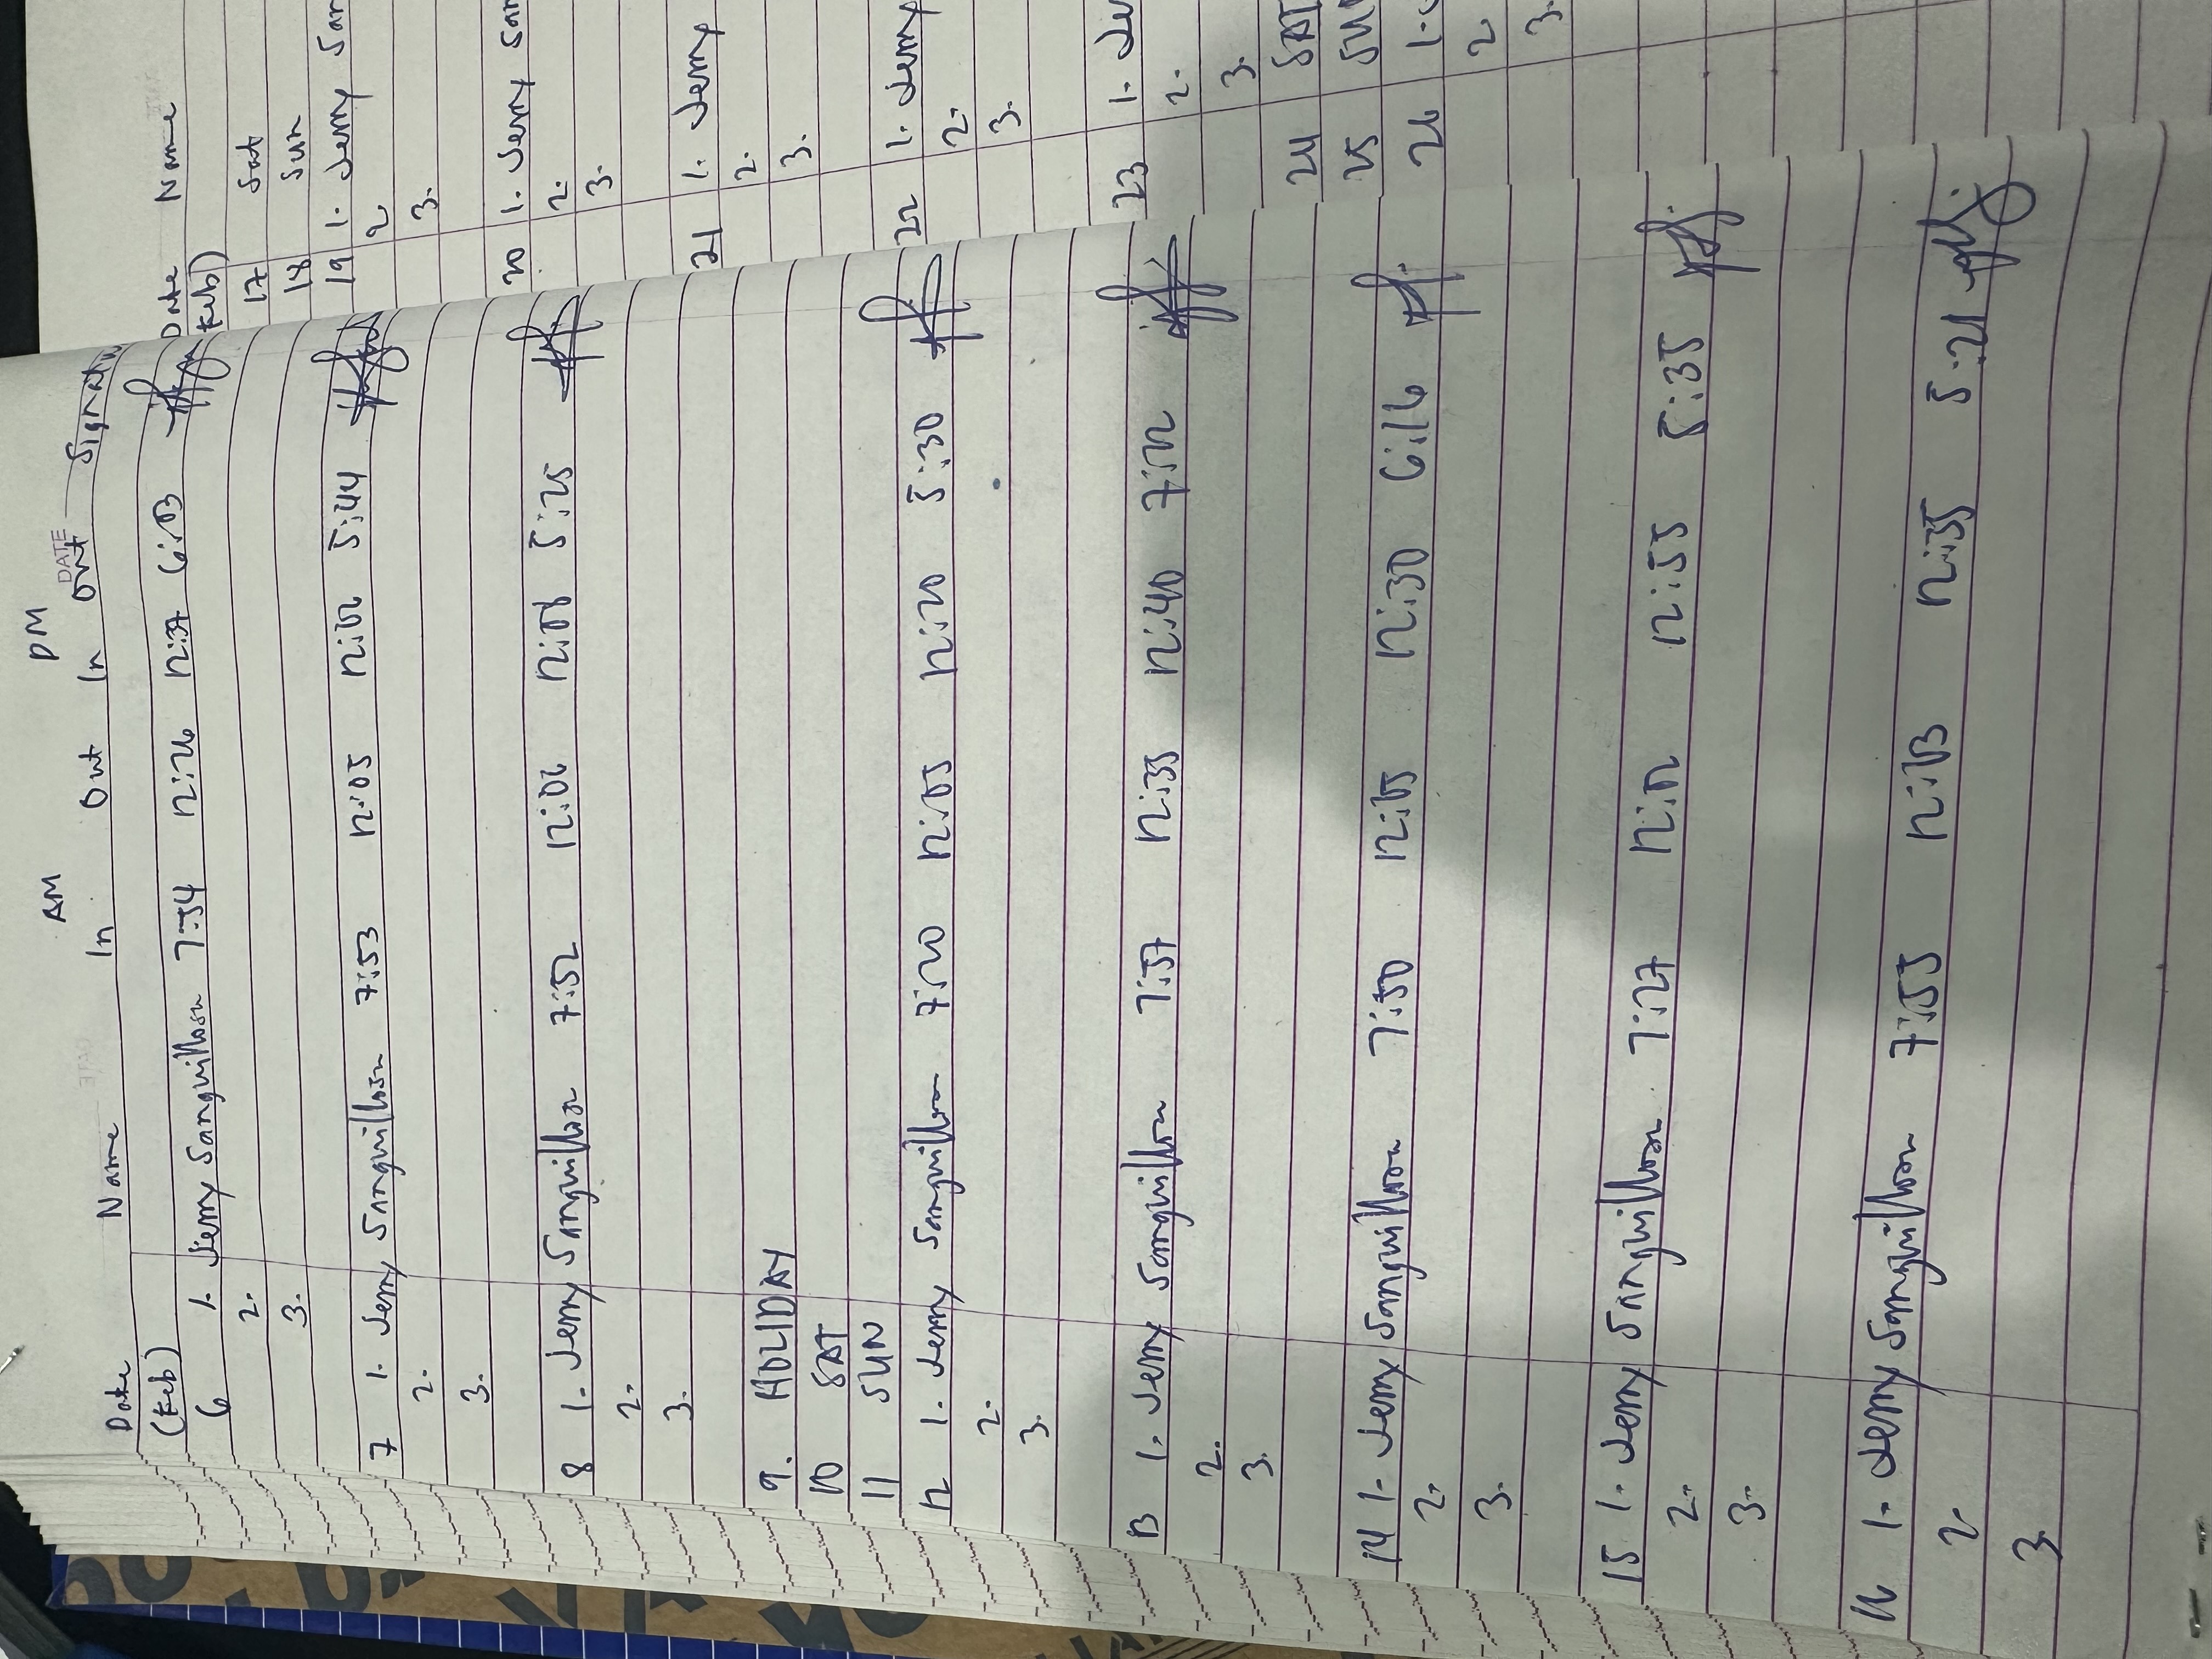 AM PM
DATE
Date Name In Out In Out
(Feb)
6 1. Jerry Sanguillosn 7:54 12:26 12:37 6:13
2.
3.
7 1. Jerry Sanguillosn 7:53 12:05 5:44
2.
3.
8 1. Jerry Sanguillosn 7:52 12:06 12:08 5:25
2.
3.
9. HOLIDAY
10 SAT
11 SUN
12 1. Jerry 7:20 12:05 12:20 5:30
2.
3.
13 1. Jerry 7:57 12:35 12:40 7:22
2.
3.
14 1. Jerry 7:50 12:05 12:30 6:16
2.
3.
15 1. Jerry 7:27 12:12 12:55 5:35
2.
3.
16 1. Jerry 7:55 12:13 12:35 5:21
2.
3.
Date Name
(Feb)
17 Sat
18 Sun
19 1. Jerry San
2.
3.
20 1. Jerry San
2.
3.
21 1. Jerry
2.
3.
22 1. Jerry
2.
3.
23 1.
2.
3.
24 SAT
25 SUN
26 1.
2.
3.